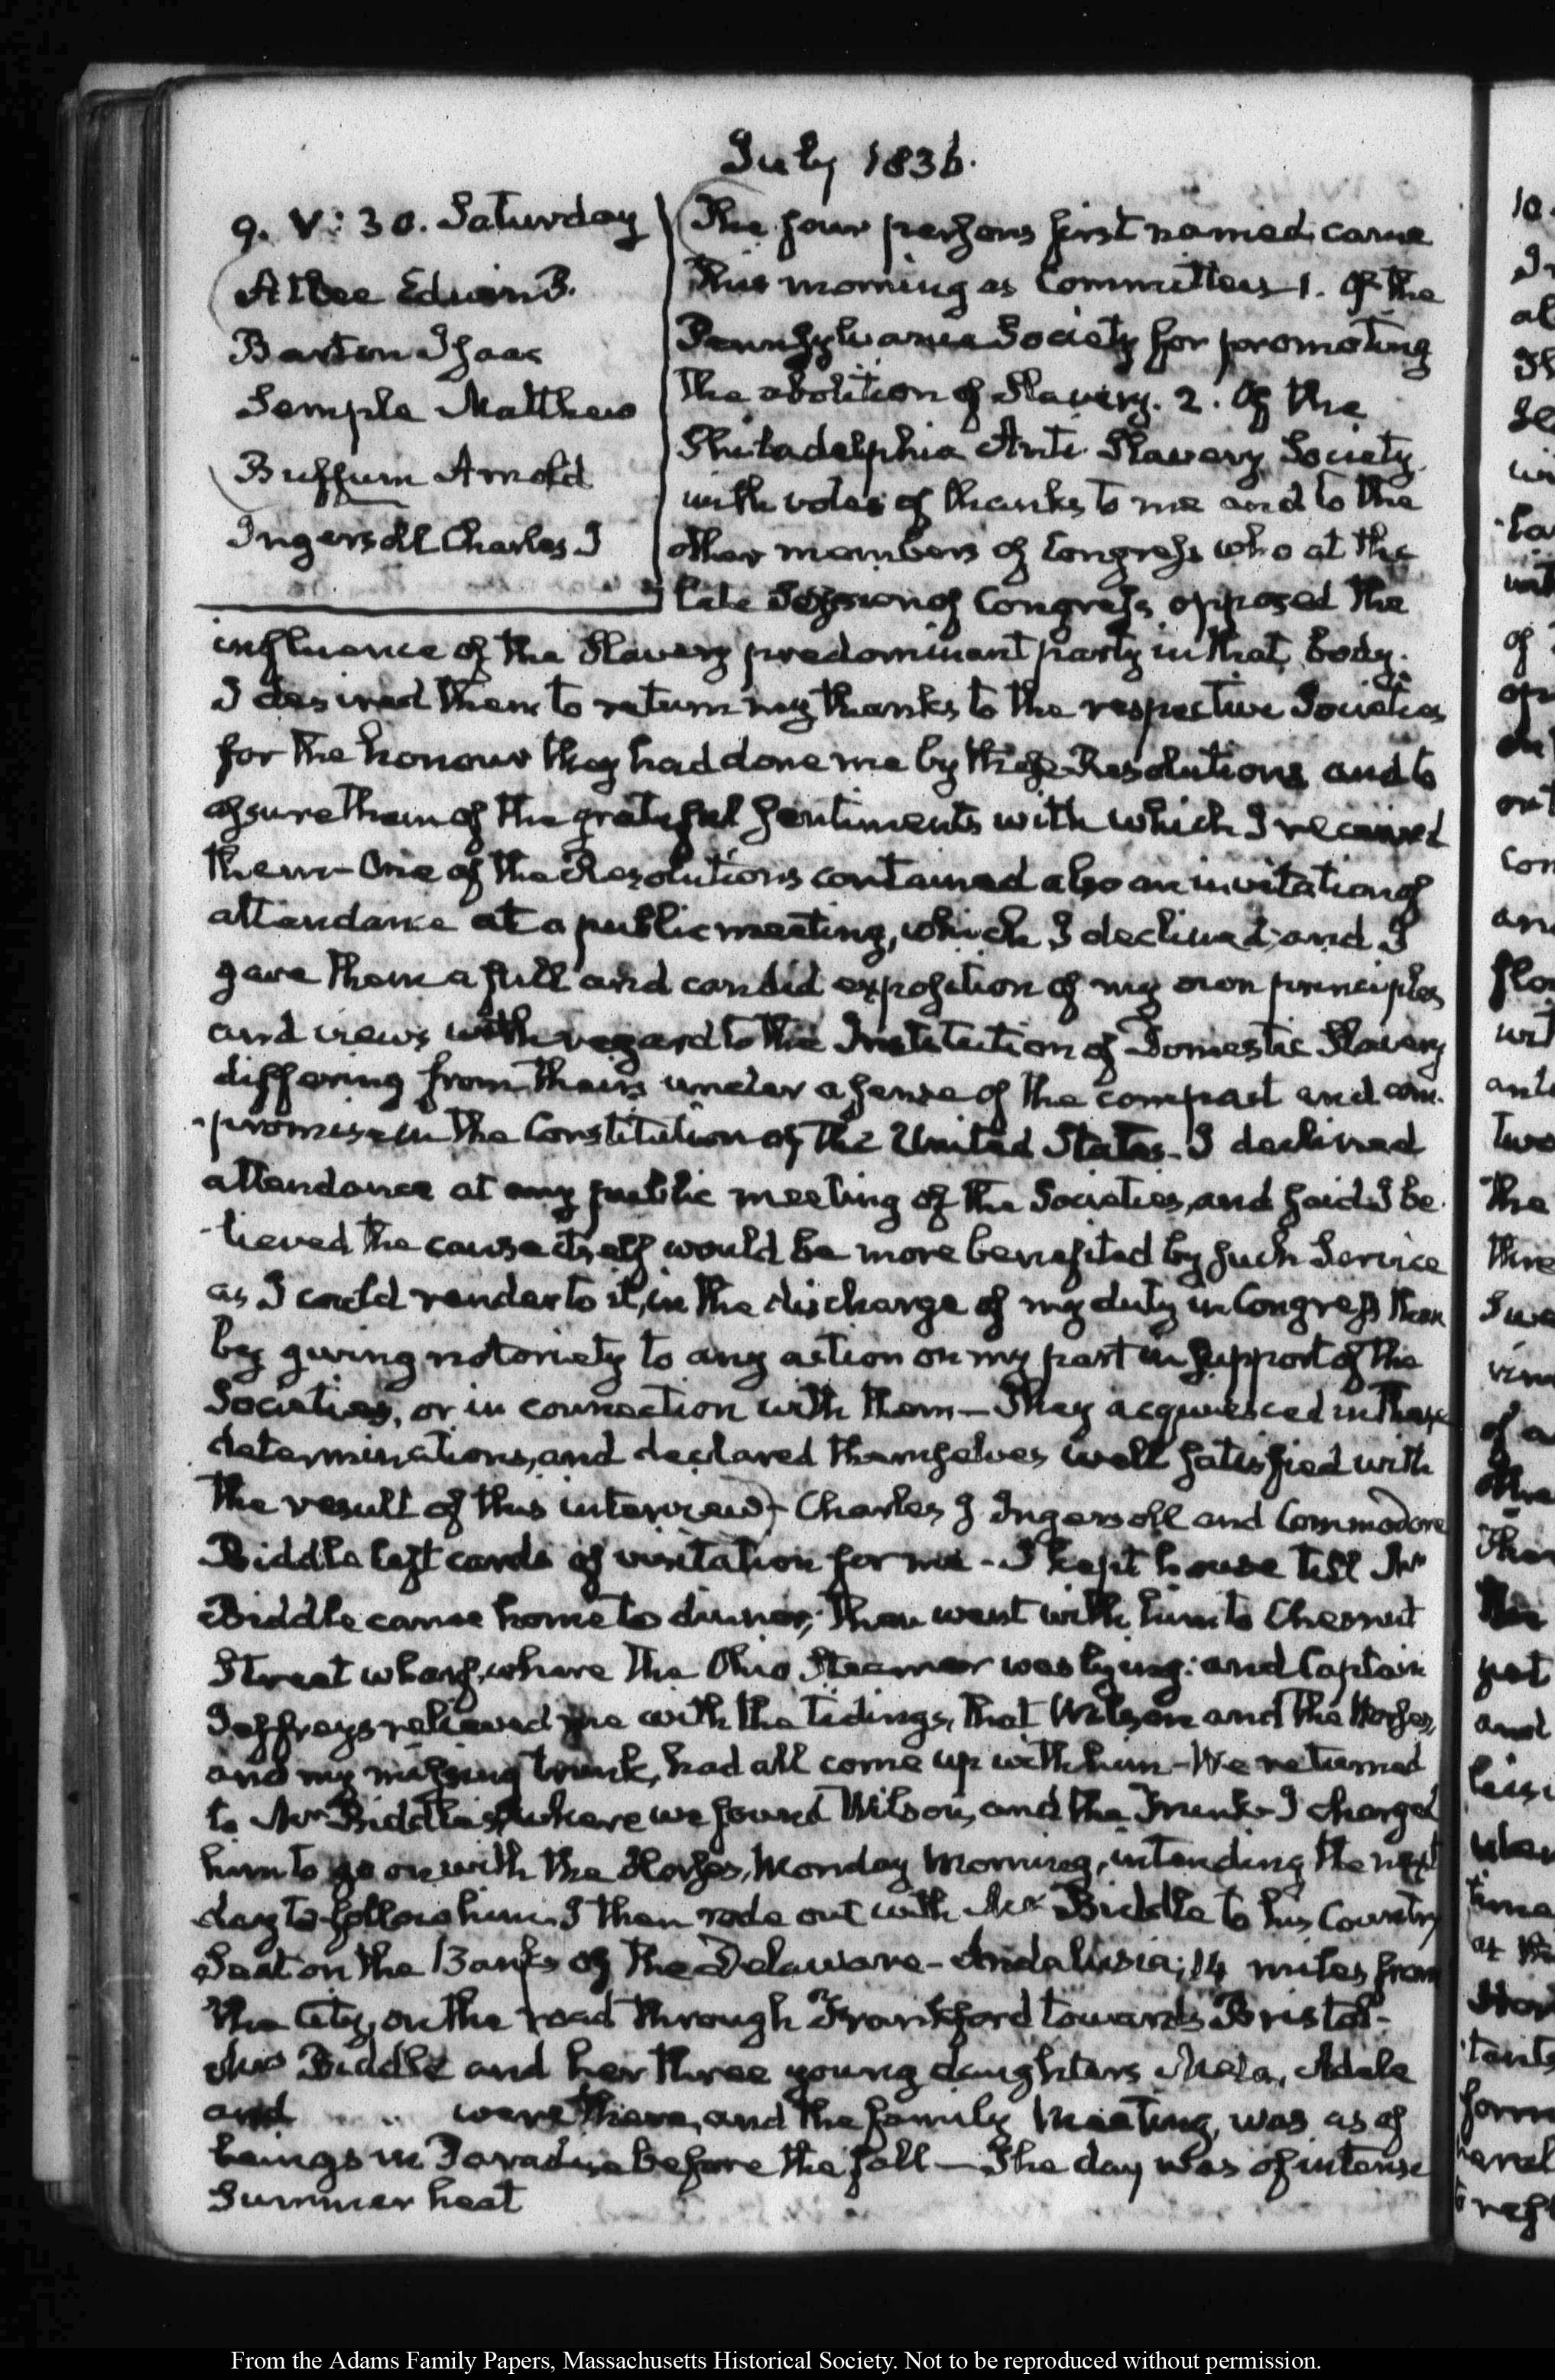 July 1836.
9. V: 30. Saturday
Atlee Edwin P.
Barton Isaac
Semple Matthew
Buffum Arnold
Ingersoll Charles J
The four persons first named, came
this morning as Committees 1. Of the
Pennsylvania Society for promoting
the abolition of Slavery. 2. Of the
Philadelphia Anti Slavery Society
with votes of thanks to me and to the
other members of Congress who at the
late Session of Congress opposed the
influence of the Slavery predominant party in that body.
I desired them to return my thanks to the respective Societies
for the honour they had done me by these Resolutions and to
assure them of the grateful sentiments with which I received
them— One of the Resolutions contained also an invitation of
attendance at a public meeting, which I declined; and I
gave them a full and candid exposition of my own principles
and views with regard to the Institution of Domestic Slavery
differing from theirs under a sense of the compact and com-
-promise in the Constitution of the United States— I declined
attendance at any public meeting of the Societies, and said I be-
-lieved the cause itself would be more benefited by such Service
as I could render to it, in the discharge of my duty in Congress than
by giving notoriety to any action on my part in support of the
Societies, or in connection with them— They acquiesced in these
determinations, and declared themselves well satisfied with
the result of this interview— Charles J Ingersoll and Commodore
Biddle left cards of visitation for me— I kept house till Mr
Biddle came home to dinner; then went with him to Chesnut
Street wharf, where the Ohio Steamer was lying: and Captain
Jeffreys relieved me with the tidings, that Wilson and the Horses,
and my missing trunk, had all come up with him— We returned
to Mr Biddle's, where we found Wilson, and the Trunk— I charged
him to go on with the Horses, Monday Morning, intending the next
day to follow him. I then rode out with Mr Biddle to his Country
Seat on the Banks of the Delaware— Andalusia; 14 miles from
the City, on the road through Frankford towards Bristol—
Mrs Biddle and her three young daughters Meta, Adele
and were there, and the family meeting, was as of
beings in Paradise before the fall— The day was of intense
Summer heat
From the Adams Family Papers, Massachusetts Historical Society. Not to be reproduced without permission.